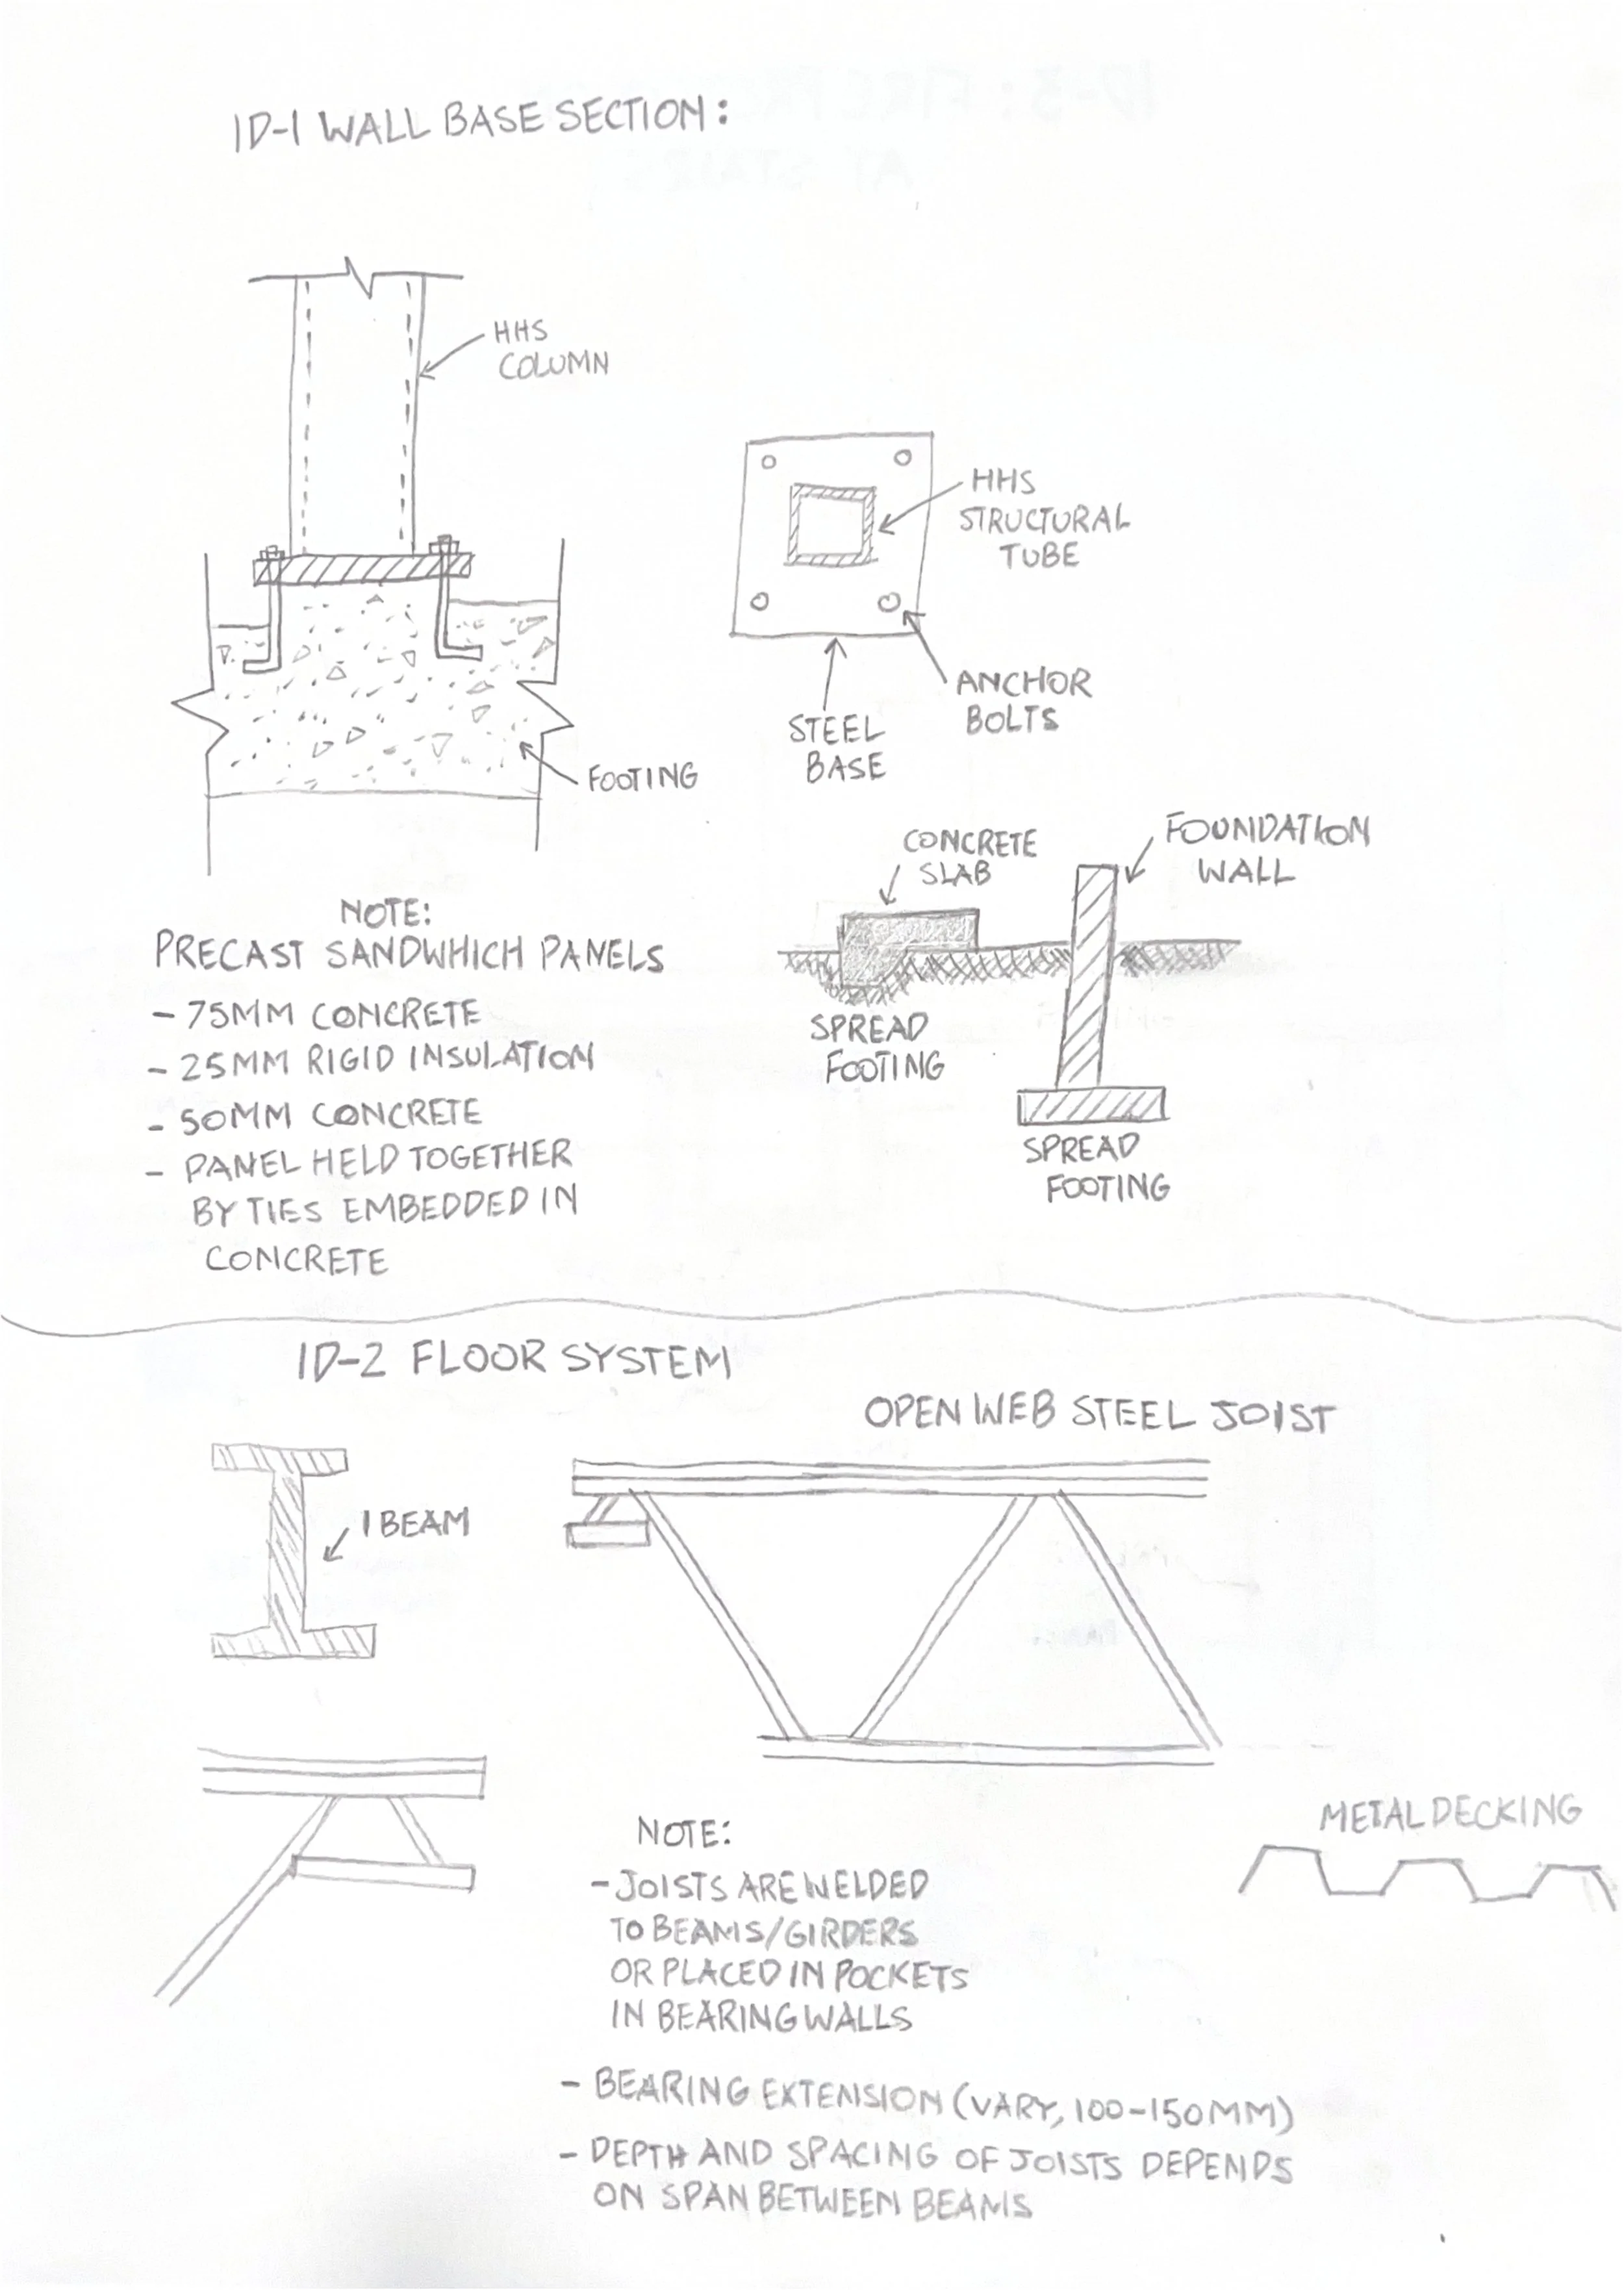 1D-1 WALL BASE SECTION:
HHS
COLUMN
HHS
STRUCTURAL
TUBE
ANCHOR
BOLTS
STEEL
BASE
FOOTING
CONCRETE
SLAB
FOUNDATION
WALL
SPREAD
FOOTING
SPREAD
FOOTING
NOTE:
PRECAST SANDWHICH PANELS
- 75MM CONCRETE
- 25MM RIGID INSULATION
- 50MM CONCRETE
- PANEL HELD TOGETHER
BY TIES EMBEDDED IN
CONCRETE
1D-2 FLOOR SYSTEM
OPEN WEB STEEL JOIST
I BEAM
METAL DECKING
NOTE:
- JOISTS ARE WELDED
TO BEAMS/GIRDERS
OR PLACED IN POCKETS
IN BEARING WALLS
- BEARING EXTENSION (VARY, 100-150MM)
- DEPTH AND SPACING OF JOISTS DEPENDS
ON SPAN BETWEEN BEAMS